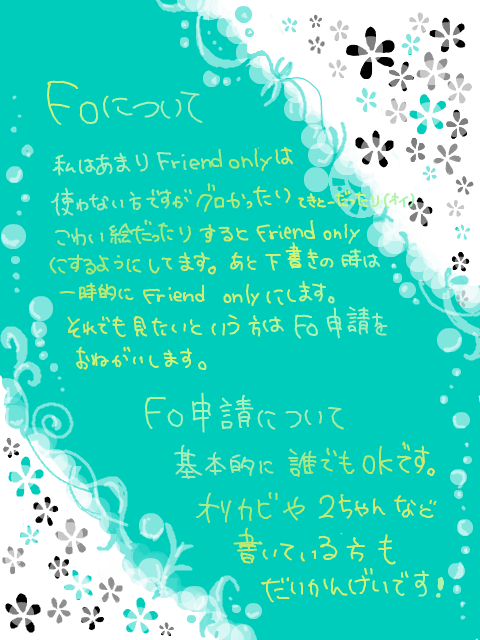 Foについて
私はあまりFriend onlyは
使わない方ですがグロかったりてきとーだったり(オイ)
こわい絵だったりするとFriend only
にするようにしてます。あと下書きの時は
一時的にFriend onlyにします。
それでも見たいという方はFo申請を
おねがいします。
Fo申請について
基本的に誰でもokです。
オリカビや2ちゃんなど
書いている方も
だいかんげいです!